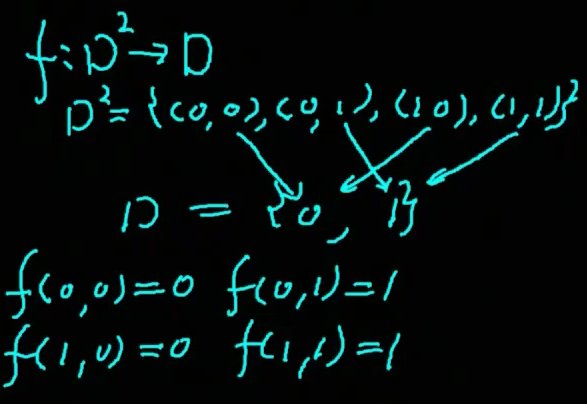 f:D²→D
D²={(0,0),(0,1),(1 0),(1,1)}
D = {0, 1}
f(0,0)=0 f(0,1)=1
f(1,0)=0 f(1,1)=1